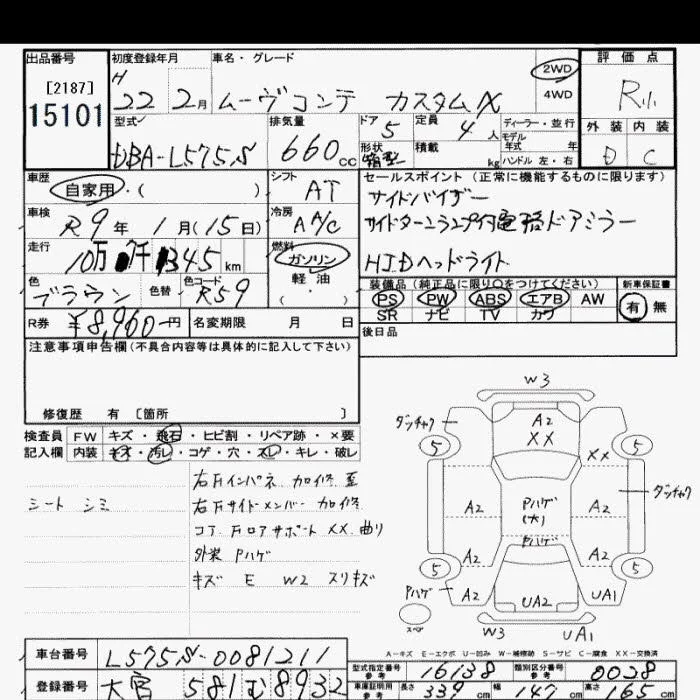 出品番号 初度登録年月 車名・グレード 評価点
[2187]
15101
H 22 2月 ムーヴコンテ カスタムX 2WD 4WD
外装 内装
D C
型式 DBA-L575S 排気量 660cc ドア 5 定員 4人 ディーラー・並行
形状 箱型 積載 kg モデル年式 年
ハンドル 左・右
車歴 自家用・( ) シフト AT
セールスポイント(正常に機能するものに限ります)
サイドバイザー
車検 R9年1月(15日) 冷房 A A/C
サイドターンランプ付電格ドアミラー
走行 km 燃料 ガソリン 軽油
HIDヘッドライト
色 ブラウン 色替 色コード R59
装備品(純正品に限り○をつけてください) 新車保証書
PS PW ABS エアB AW 有 無
SR ナビ TV カワ
R券 ¥8,960円 名変期限 月 日
後日品
注意事項申告欄(不具合内容等は具体的に記入して下さい)
修復歴 有 [箇所 ]
検査員 FW キズ・飛石・ヒビ割・リペア跡・×要
記入欄 内装 キズ・汚レ・コゲ・穴・スレ・キレ・破レ
シート シミ
右Fインパネ 加修歪
右Fサイドメンバー 加修
コアFロアサポート XX 曲り
外装 Pハゲ
キズ E W2 スリキズ
W3
ダッチャク
A2
XX
XX
5 5
ダッチャク
A2 Pハゲ(大) A2
Pハゲ
A2 A2
5 5
Pハゲ A2 UA2 UA1
スペア
W3 UA1
A-キズ E-エクボ U-凹み W-補修跡 S-サビ C-腐食 XX-交換済
車台番号 L575S-0081211
型式指定番号 参考 16138 類別区分番号 参考 0028
登録番号 大宮 581 む 8932
車庫証明用 参考 長さ 339cm 幅 147cm 高さ 165cm